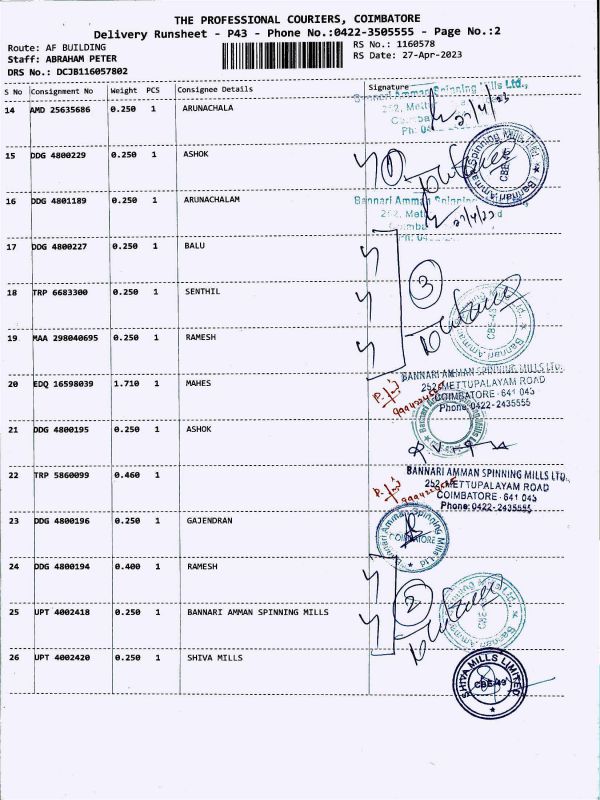 THE PROFESSIONAL COURIERS, COIMBATORE
Delivery Runsheet - P43 - Phone No.:0422-3505555 - Page No.:2
Route: AF BUILDING
Staff: ABRAHAM PETER
DRS No.: DCJB116057802
RS No.: 1160578
RS Date: 27-Apr-2023
S No Consignment No Weight PCS Consignee Details Signature
14 AMD 25635686 0.250 1 ARUNACHALA
Bannari Amman Spinning Mills Ltd.,
252, Mett
Coimba
Ph: 04
27/4/23
15 DDG 4800229 0.250 1 ASHOK
1
Bannari Amman Spinning Mills Ltd.
CBE-43
16 DDG 4801189 0.250 1 ARUNACHALAM
Bannari Amman Spinning Mills
252, Mett
27/4/23
17 DDG 4800227 0.250 1 BALU
3
18 TRP 6683300 0.250 1 SENTHIL
Bannari Amman
CBE-43
19 MAA 298040695 0.250 1 RAMESH
20 EDQ 16598039 1.710 1 MAHES
BANNARI AMMAN SPINNING MILLS LTD.
252, METTUPALAYAM ROAD
COIMBATORE - 641 043
Phone: 0422-2435555
21 DDG 4800195 0.250 1 ASHOK
22 TRP 5860099 0.460 1
BANNARI AMMAN SPINNING MILLS LTD.
252, METTUPALAYAM ROAD
COIMBATORE - 641 043
Phone: 0422-2435555
23 DDG 4800196 0.250 1 GAJENDRAN
Bannari Amman Spinning Mills
COIMBATORE
24 DDG 4800194 0.400 1 RAMESH
2
25 UPT 4002418 0.250 1 BANNARI AMMAN SPINNING MILLS
26 UPT 4002420 0.250 1 SHIVA MILLS
SHIVA MILLS LIMITED
CBE-43